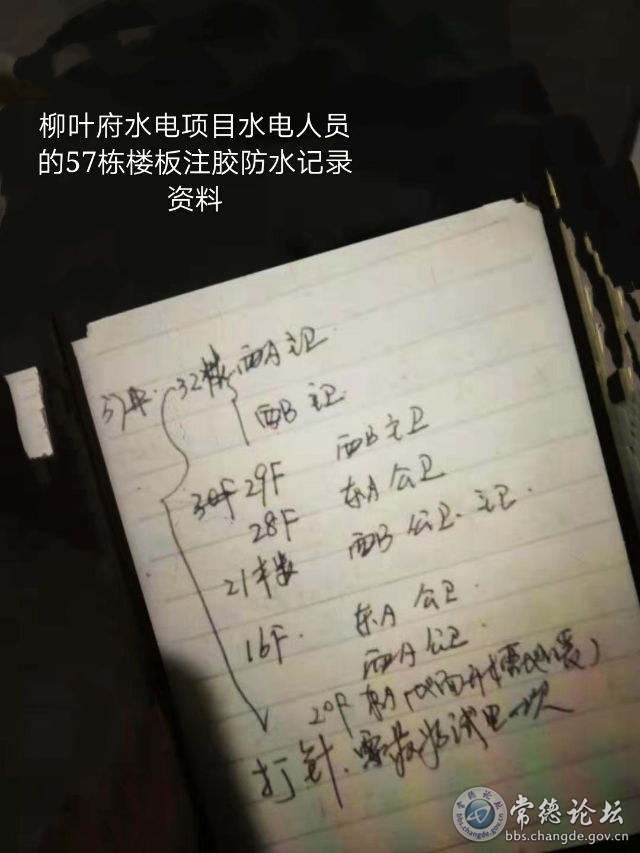 柳叶府水电项目水电人员
的57栋楼板注胶防水记录
资料
57# 32楼 西A 主卫
西B 主卫
29F 西B 主卫
28F 东A 公卫
21楼 西B 公卫 主卫
16F. 东A 公卫
西A 公卫
20F 东A
打针. 需 试电一次
常德论坛
bbs.changde.gov.cn